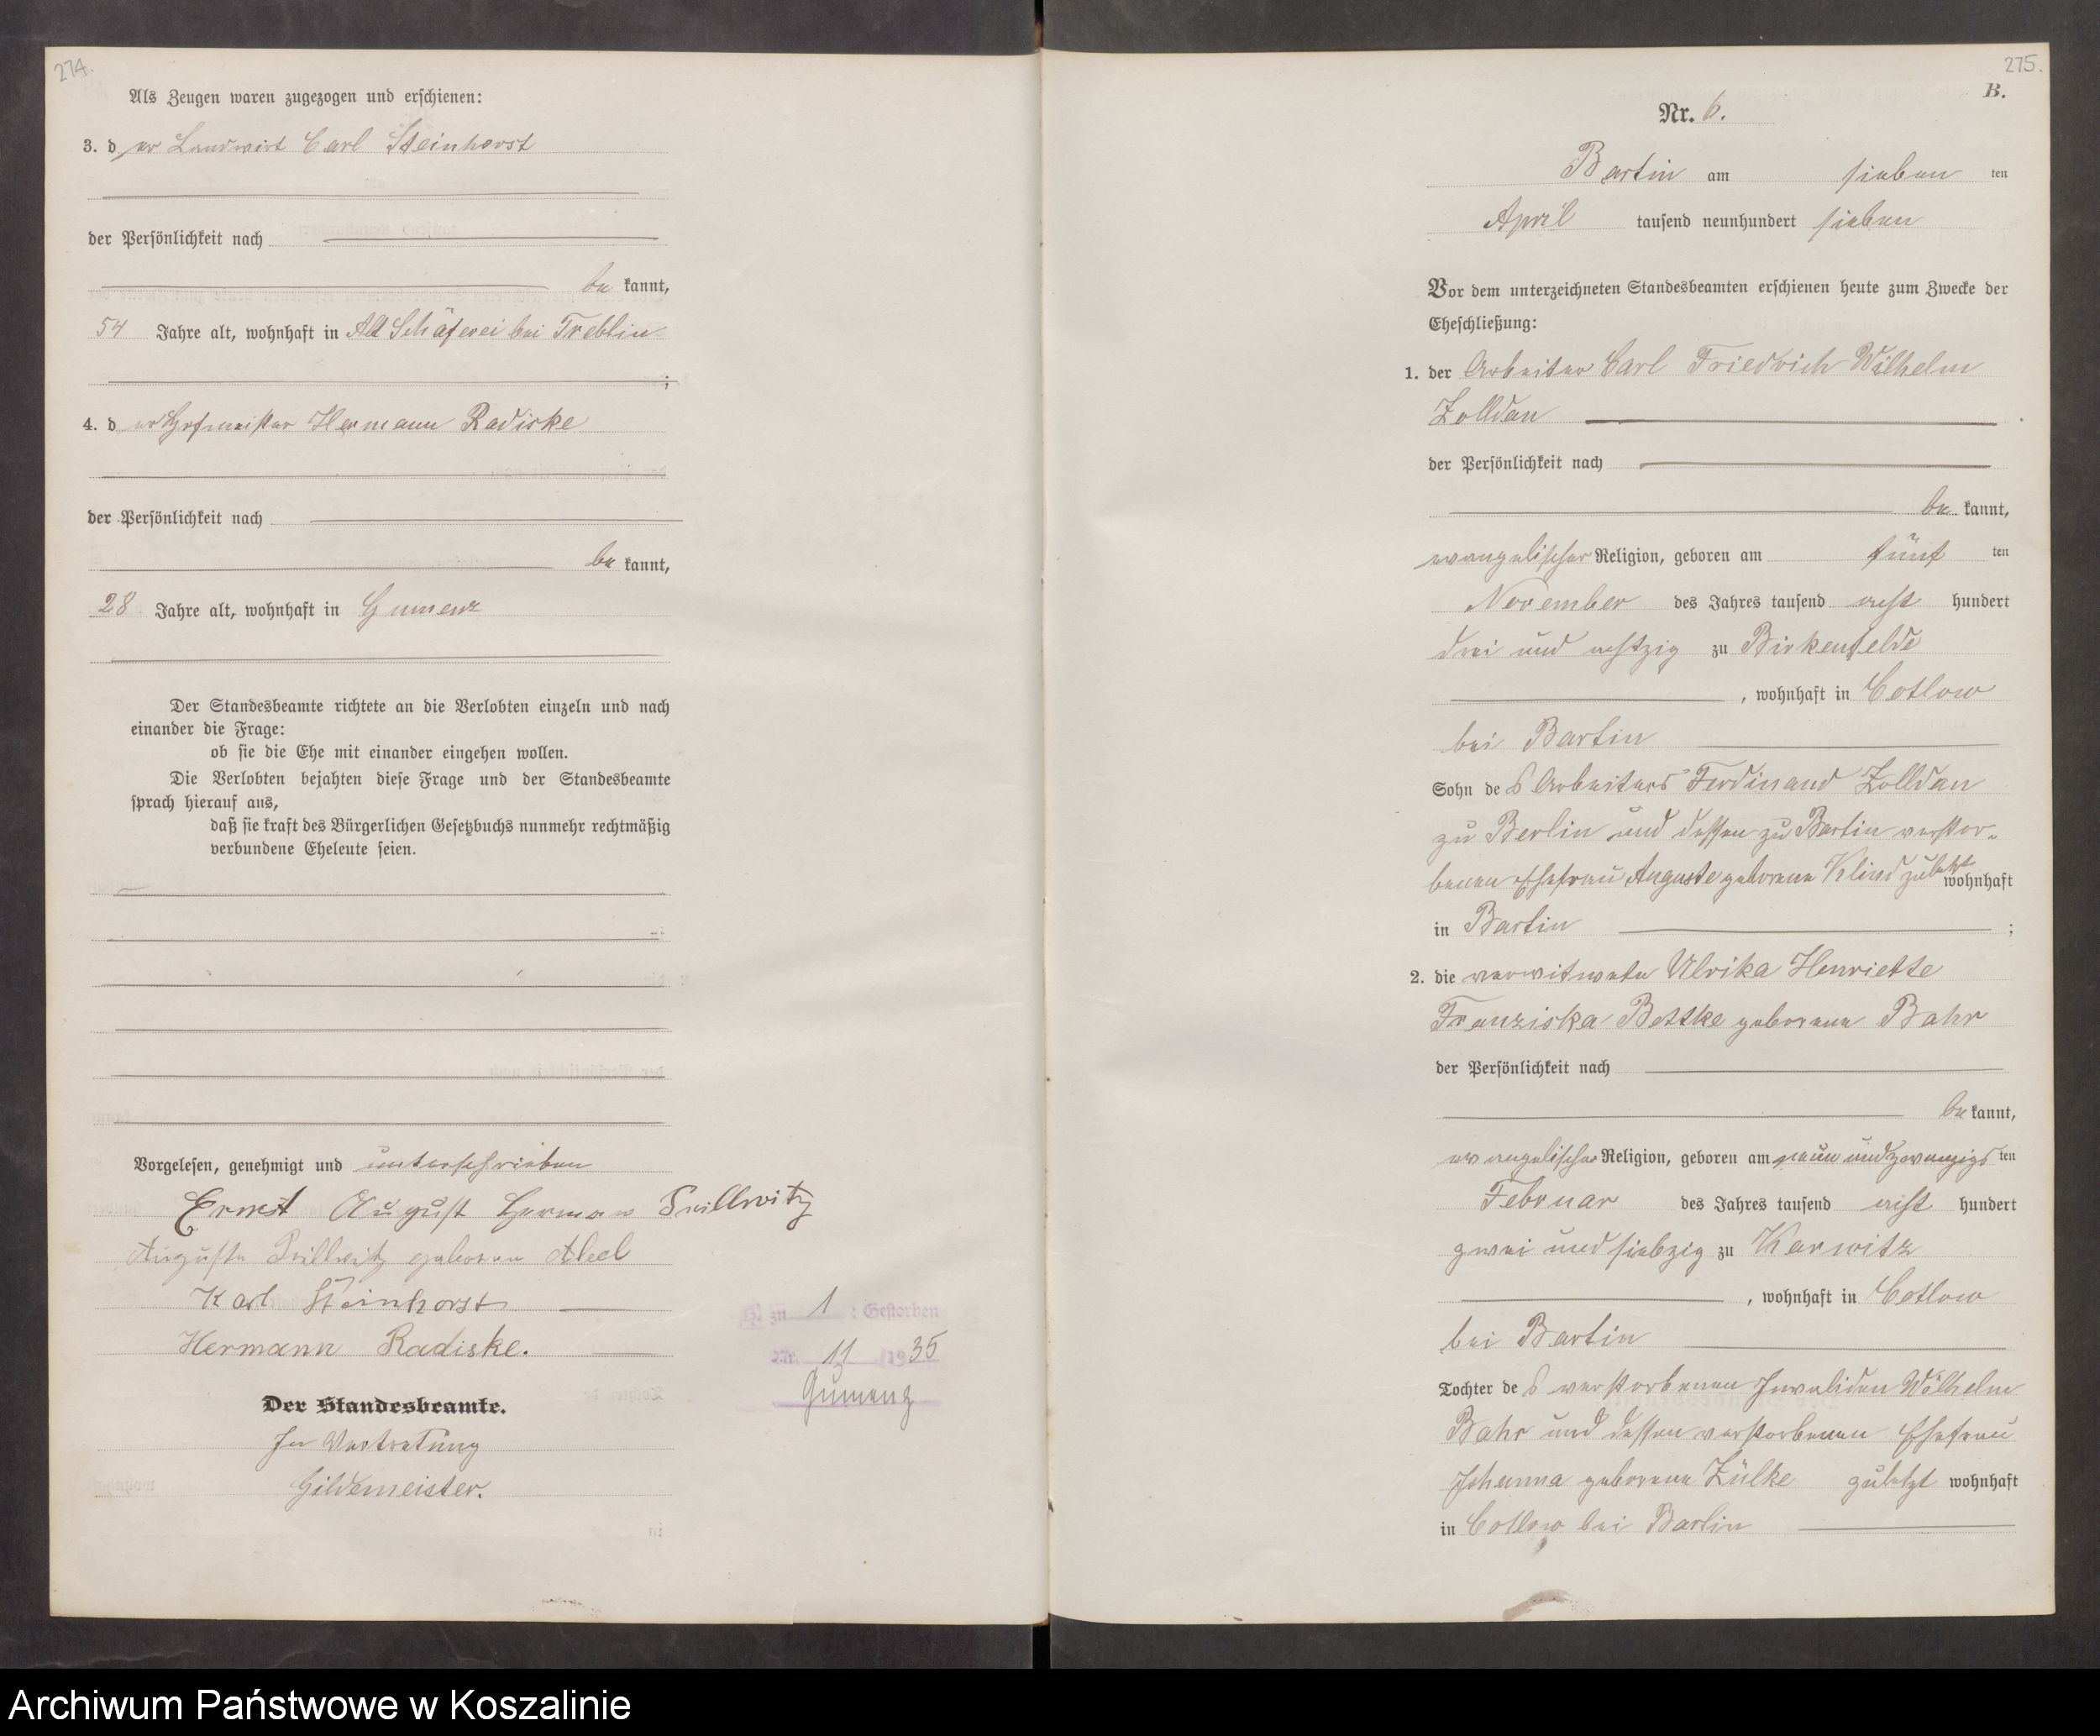 274.
Als Zeugen waren zugezogen und erschienen:
3. der Landwirt Carl Steinhorst
der Persönlichkeit nach
be kannt,
54 Jahre alt, wohnhaft in Alt Schäferei bei Treblin
;
4. der Hofmeister Hermann Radiske
der Persönlichkeit nach
be kannt,
28 Jahre alt, wohnhaft in Gumenz
Der Standesbeamte richtete an die Verlobten einzeln und nach
einander die Frage:
ob sie die Ehe mit einander eingehen wollen.
Die Verlobten bejahten diese Frage und der Standesbeamte
sprach hierauf aus,
daß sie kraft des Bürgerlichen Gesetzbuchs nunmehr rechtmäßig
verbundene Eheleute seien.
Vorgelesen, genehmigt und unterschrieben
Ernst August Herman Prillwitz
Auguste Prillwitz geboren Abel
Karl Steinhorst
Hermann Radiske.
Der Standesbeamte.
In Vertretung
Gildemeister.
zu 1 : Gestorben
Nr. 11 /19 35
Gumenz
275.
B.
Nr. 6.
Bartin am sieben ten
April tausend neunhundert sieben
Vor dem unterzeichneten Standesbeamten erschienen heute zum Zwecke der
Eheschließung:
1. der Arbeiter Carl Friedrich Wilhelm
Zolldan
der Persönlichkeit nach
be kannt,
evangelischer Religion, geboren am fünf ten
November des Jahres tausend acht hundert
drei und achtzig zu Birkenfelde
, wohnhaft in Cotlow
bei Bartin
Sohn des Arbeiters Ferdinand Zolldan
zu Berlin und dessen zu Bartin verstor-
benen Ehefrau Auguste geborene Klind zuletzt wohnhaft
in Bartin ;
2. die verwitwete Ulrika Henriette
Franziska Bettke geborene Bahr
der Persönlichkeit nach
be kannt,
evangelischer Religion, geboren am neun und zwanzigs ten
Februar des Jahres tausend acht hundert
zwei und siebzig zu Karwitz
, wohnhaft in Cotlow
bei Bartin
Tochter des verstorbenen Invaliden Wilhelm
Bahr und dessen verstorbenen Ehefrau
Johanna geborene Zülke zuletzt wohnhaft
in Cotlow bei Bartin
Archiwum Państwowe w Koszalinie